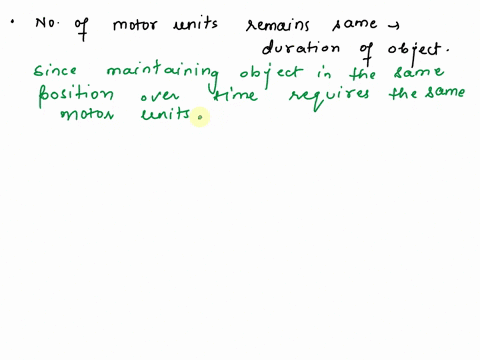 • No. of motor units remains same →
duration of object.
Since maintaining object in the same
position over time requires the same
motor units.